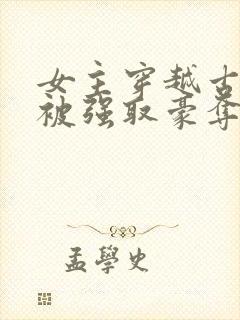 女主穿越古
被强取豪夺
孟學史